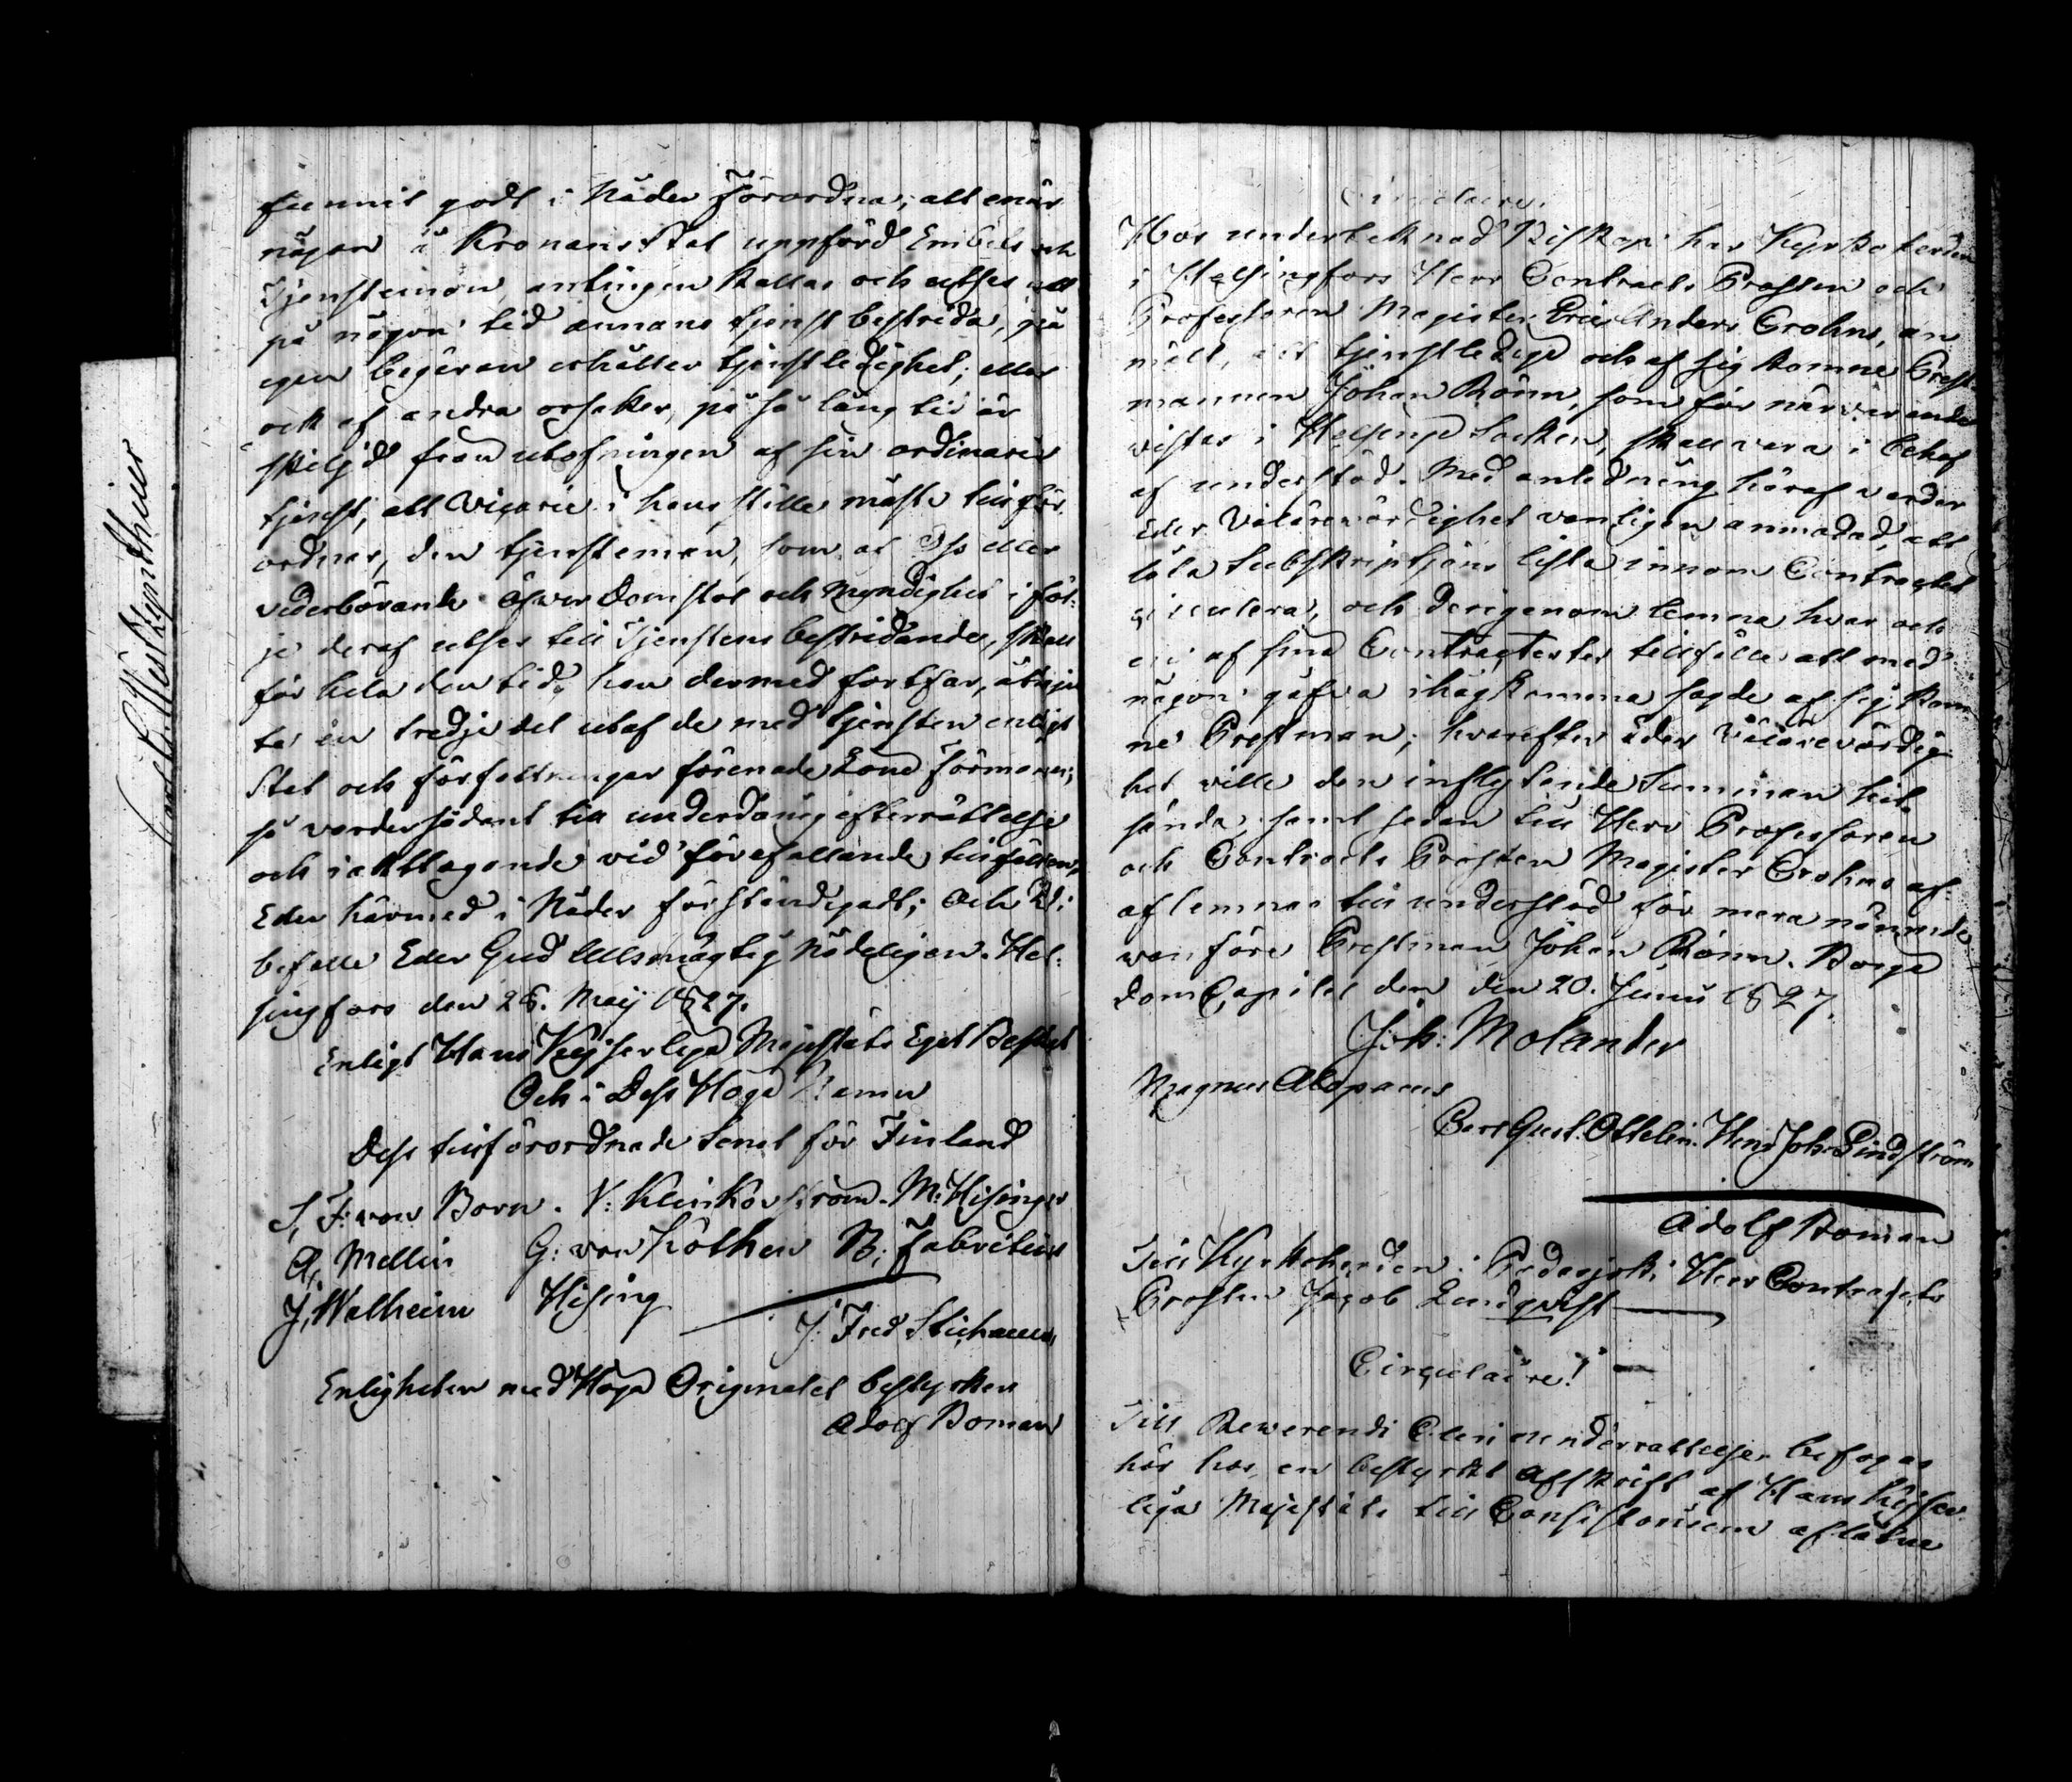 funnit godt i Nåder Förordna; att enär
någon å Kronans Stat uppförd Embets och
Tjensteman antingen kallas och utses att
på någon tid annans tjenst bestrida, på
egen begäran erhåller tjenstledighet; eller
ock af andra orsaker, på så lång tid är
skiljd från utöfningen af sin ordinarie
tjenst, att Vicarie i hans ställe måste tillför-
ordnas, den tjensteman, som af Oss eller
vederbörande Öfwer Domstol och Myndighet i föl-
je deraf utses till Tjenstens bestridande, skall
för hela den tid, han dermed fortfar, åtnju-
ta en tredjedel utaf de med tjensten enligt
Stat och författningar förenade Löne Förmoner;
så varder sådant till underdånig efterrättelse
och iakttagande vid förefallande tillfällen,
Eder härmed i Nåder förständigadt; Och Vi
befalle Eder Gud Allsmägtig Nådeligen. Hel-
singfors den 28. Maij 1827.
Enligt Hans Kejserliga Majestäts Eget Beslut
Och i Dess Höga Namn
Dess tillförordnade Senat för Finland
S. F. von Born. V. Klinkowström. M. Hisinger
A. Mellin G. von Kothen B. Fabritius
J. Walheim Hising
J. Fred Stichaeus
Enligheten med Höga Originalet bestyrker
Adolf Boman
Circulaire.
Hos undertecknad Biskop har Kyrkoherden
i Helsingfors Herr Contracts Prosten och
Professoren Magister Eric Anders Crohns, an-
mält, att tjenstledige och af sig komne Prest-
mannen Johan Rönn, som för närvarande
vistas i Helsinge Socken, skall vara i behof
af understöd. Med anledning häraf varder
Eder Välärevördighet vänligen anmodad, att
låta Subskriptions lista innom Contractet
circulera, och derigenom lemna hvar och
en af sina Contracterter tillfälle att med
någon gåfva ihågkomma sagde af sig kom-
ne Prestman; hvarefter Eder Välärevördig-
het ville den inflytande Summan hit
sända, samt sedan till Herr Professoren
och Contracts Prosten Magister Crohns af-
aflemnas till understöd för mera nämnde
wanföre Prestman Johan Rönn. Borgå
DomCapitel den den 20. Junii 1827.
Joh: Molander
Magnus Alopaeus
Carl Gust. Ottelin. Hens Joh: Lindström
Adolf Boman
Till Kyrkoherden i Padasjoki Herr Contracts
Prosten Jacob Lundqvist
Circulaire!
Till Rewerendi Cleri underrättelse bifogas
här hos, en bestyrkt Afskrift af Hans Kejser-
liga Majestäts till Consistorium aflåtne